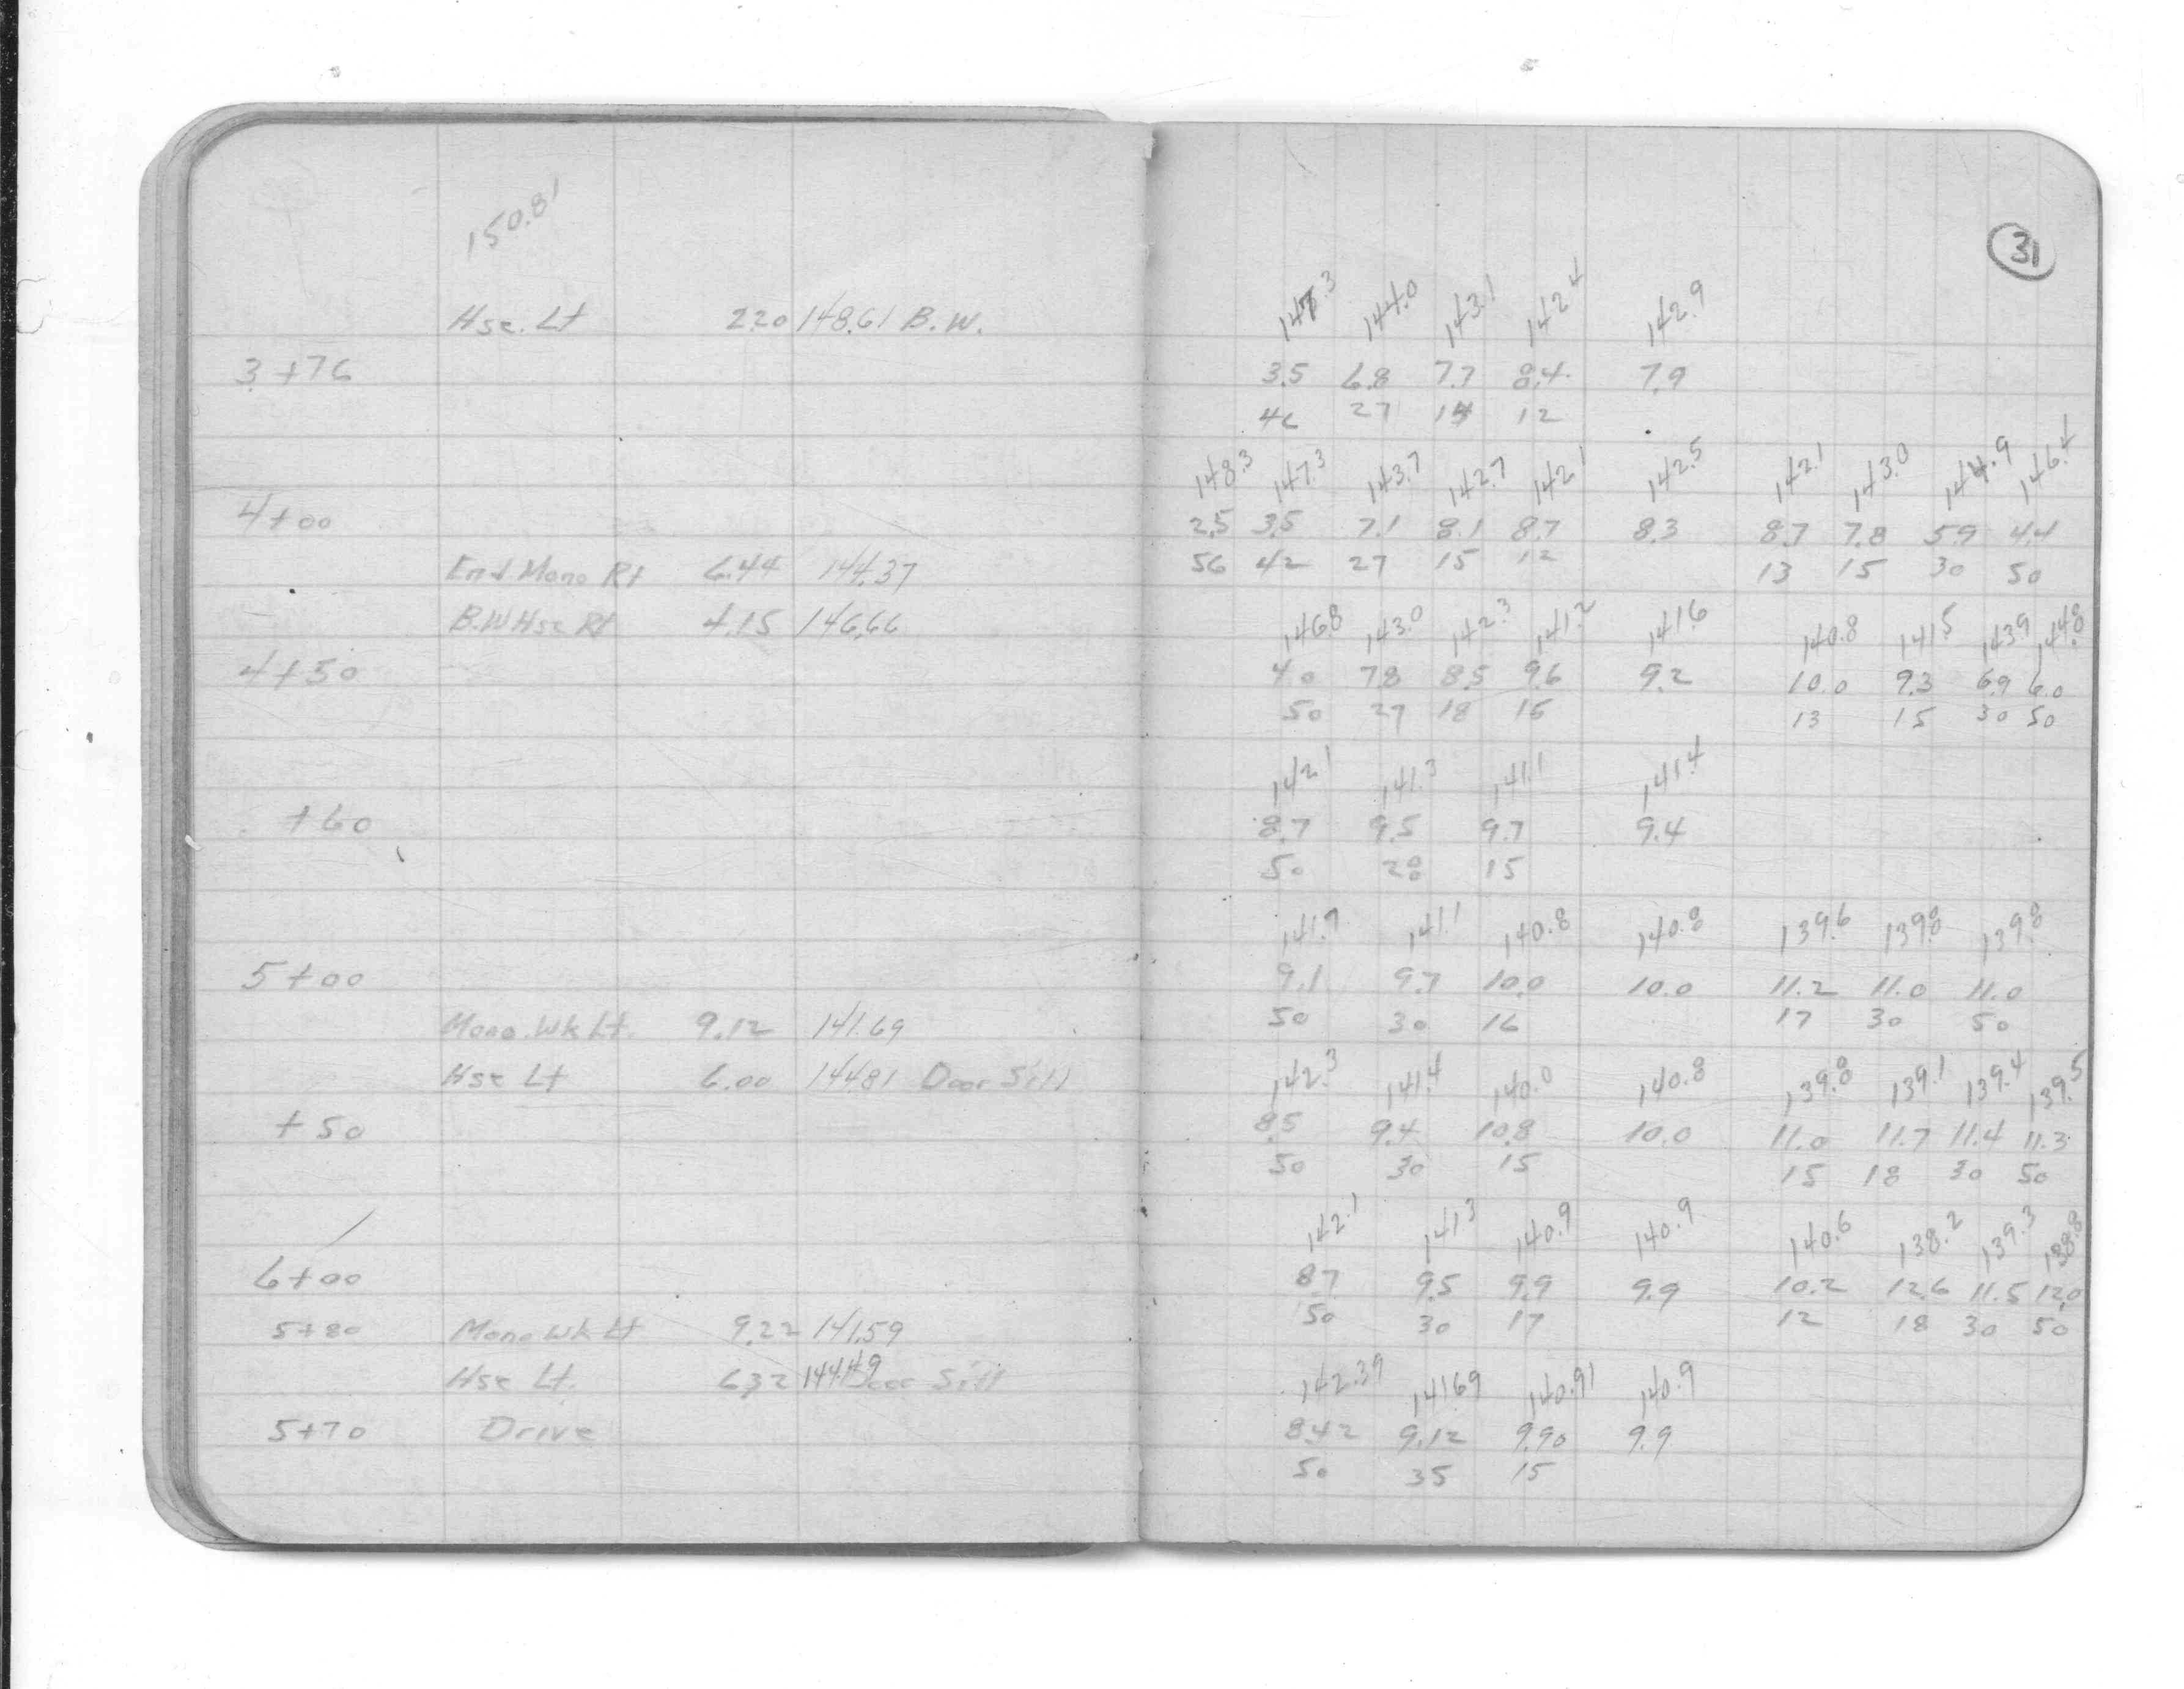 150.81
31
Hse. Lt 2.20 148.61 B.W. 147.3 144.0 143.1 142.4 142.9
3+76 3.5 6.8 7.7 8.4 7.9
27 14 12
148.3 147.3 143.7 142.7 142.1 142.5 142.1 143.0 144.9 146.4
4+00 2.5 3.5 7.1 8.1 8.7 8.3 8.7 7.8 5.9 4.4
End Mono Rt 6.44 144.37 56 42 27 15 12 13 15 30 50
B.W Hse Rt 4.15 146.66 146.8 143.0 142.3 141.2 141.6 140.8 141.5 143.9 144.8
4+50 4.0 7.8 8.5 9.6 9.2 10.0 9.3 6.9 6.0
50 27 18 15 13 15 30 50
142.1 141.3 141.1 141.4
+60 8.7 9.5 9.7 9.4
50 28 15
141.7 141.1 140.8 140.8 139.6 139.8 139.8
5+00 9.1 9.7 10.0 10.0 11.2 11.0 11.0
Mono. Wk Lt. 9.12 141.69 50 30 16 17 30 50
Hse Lt 6.00 144.81 Door Sill 142.3 141.4 140.0 140.8 139.8 139.1 139.4 139.5
+50 8.5 9.4 10.8 10.0 11.0 11.7 11.4 11.3
50 30 15 15 18 30 50
142.1 141.3 140.9 140.9 140.6 138.2 139.3 138.8
6+00 8.7 9.5 9.9 9.9 10.2 12.6 11.5 12.0
5+80 Mono Wk Lt 9.22 141.59 50 30 17 12 18 30 50
Hse Lt. 6.32 144.49 Door Sill 142.39 141.69 140.91 140.9
5+70 Drive 8.42 9.12 9.90 9.9
50 35 15